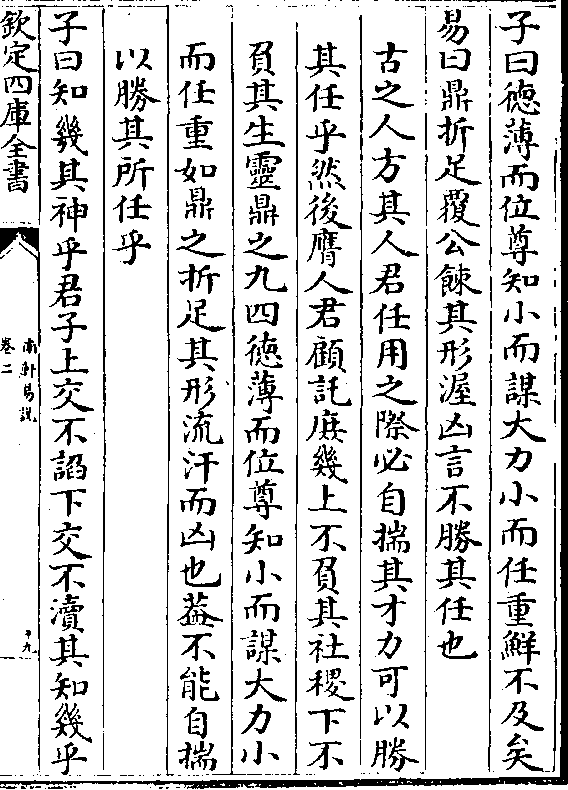 子曰徳薄而位尊知小而謀大力小而任重鮮不及矣
易曰鼎折足覆公餗其形渥凶言不勝其任也
古之人方其人君任用之際必自揣其才力可以勝
其任乎然後膺人君顧託庶幾上不負其社稷下不
負其生靈鼎之九四徳薄而位尊知小而謀大力小
而任重如鼎之折足其形流汗而凶也葢不能自揣
以勝其所任乎
子曰知幾其神乎君子上交不諂下交不瀆其知幾乎
欽定四庫全書
南軒易說
卷二
十九